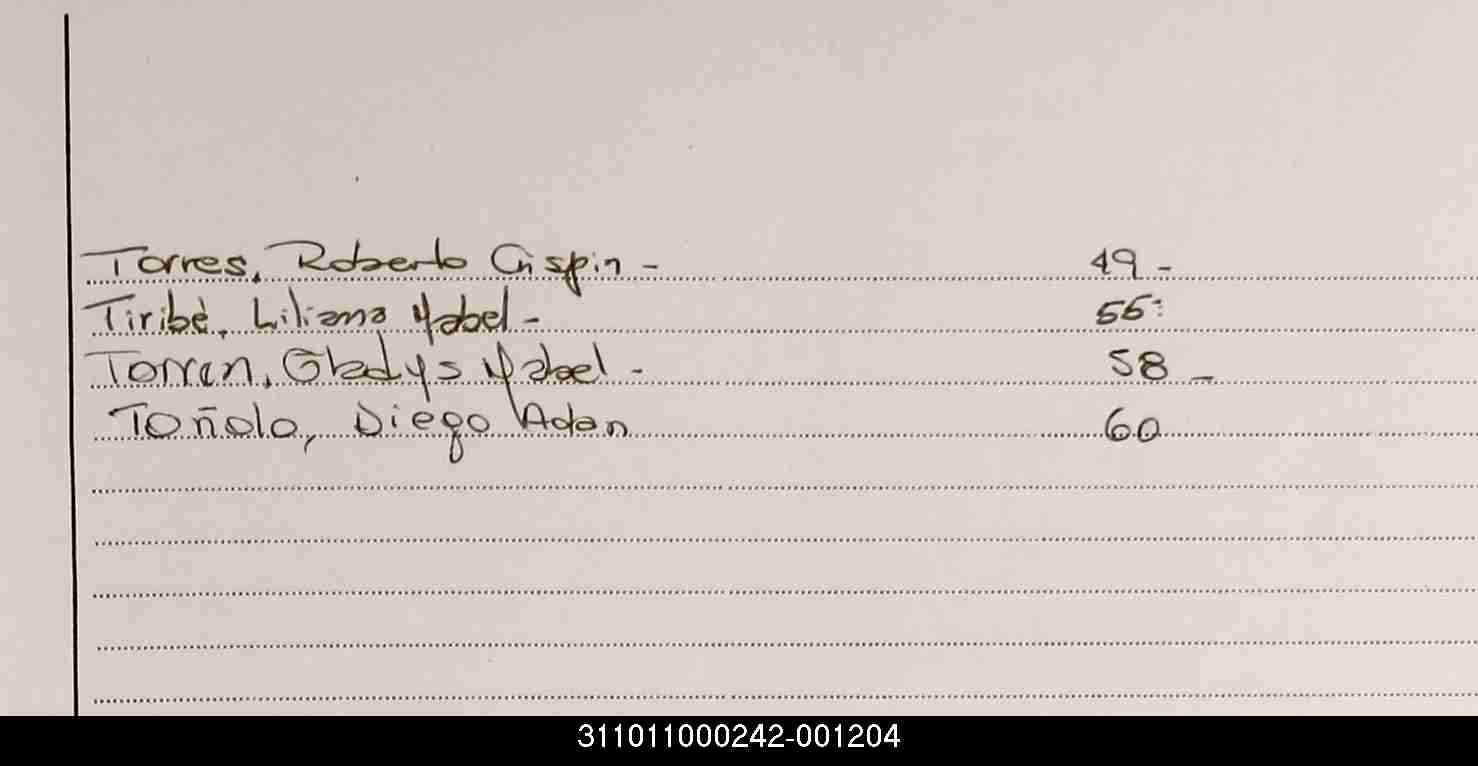 Torres, Roberto Crispin - 49 -
Tiribé, Liliana Mabel - 55:
Torren, Gladys Mabel - 58 -
Toñolo, Diego Adan 60
311011000242-001204